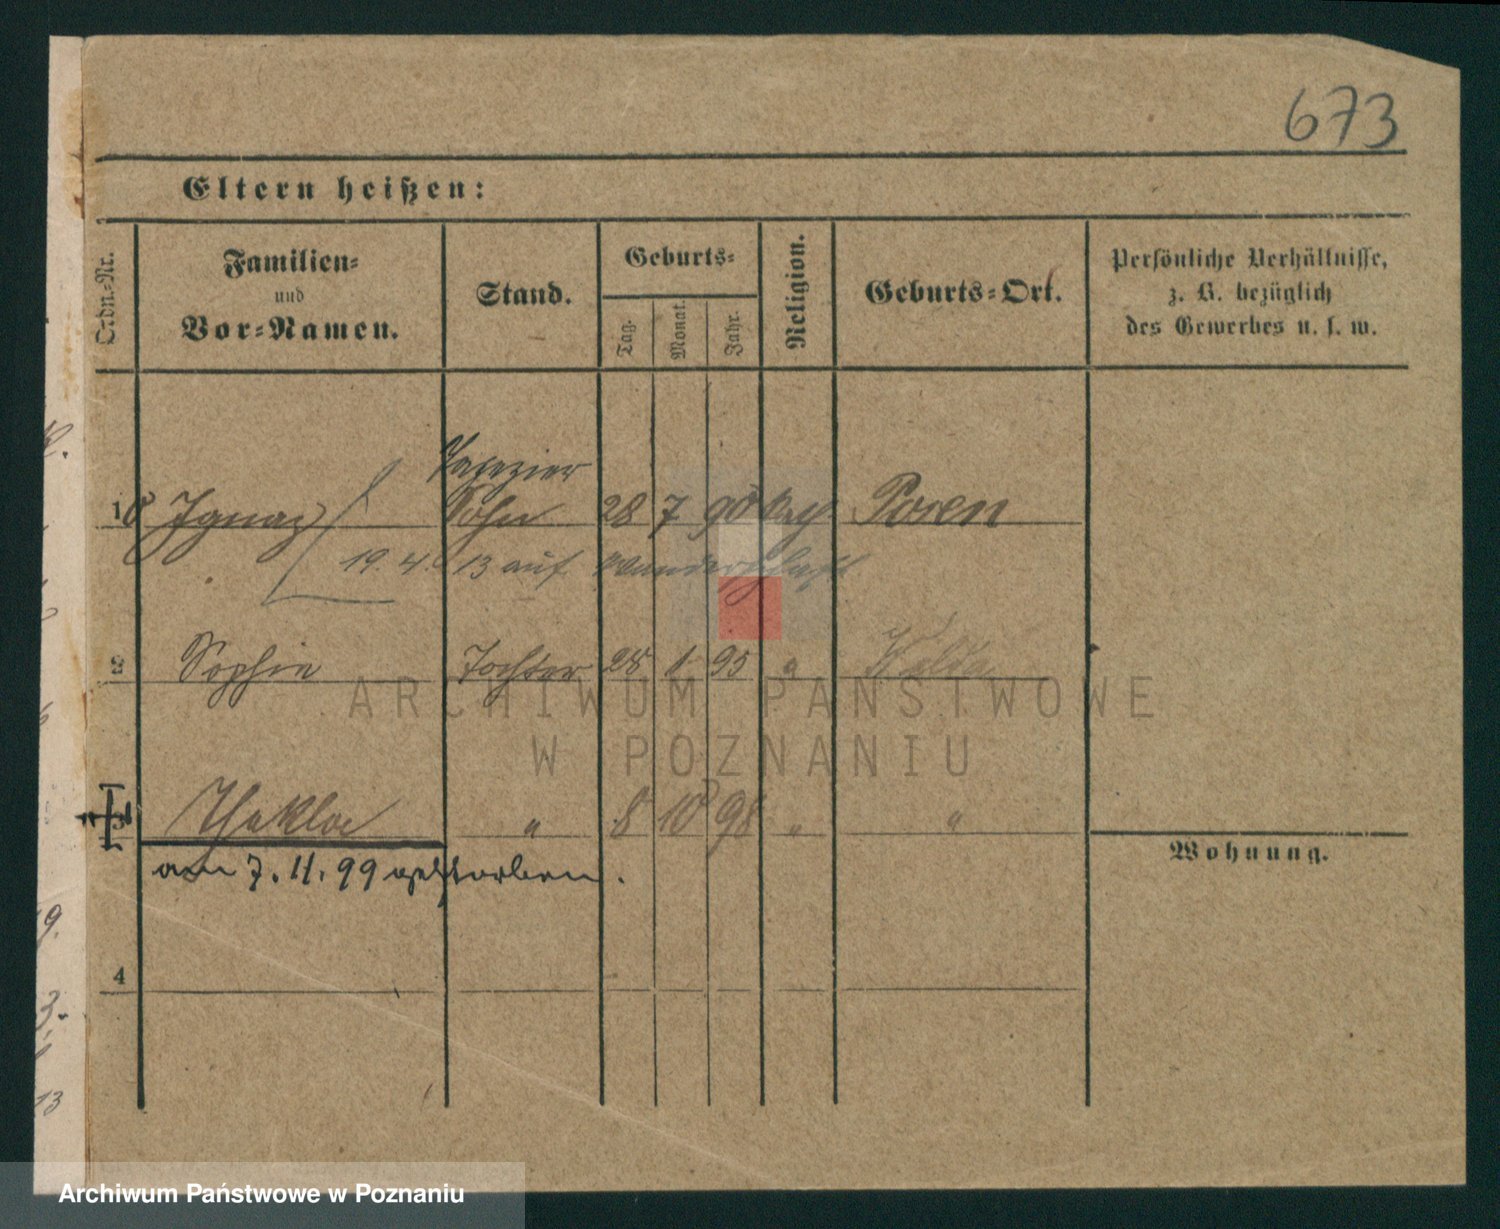 673
Eltern heißen:
Ordn.-Nr.
Familien-
und
Vor-Namen.
Stand.
Geburts-
Tag.
Monat.
Jahr.
Religion.
Geburts-Ort.
Persönliche Verhältnisse,
z. B. bezüglich
des Gewerbes u. s. w.
Tapezier
1 Ignaz Sohn 28 7 90 Posen
19. 4. 13 auf Wanderschaft
2 Sophie Tochter 28 1 95 "
Thekla " 8 10 98 " "
am 7. 11. 99 gestorben.
Wohnung.
4
ARCHIWUM PAŃSTWOWE
W POZNANIU
Archiwum Państwowe w Poznaniu